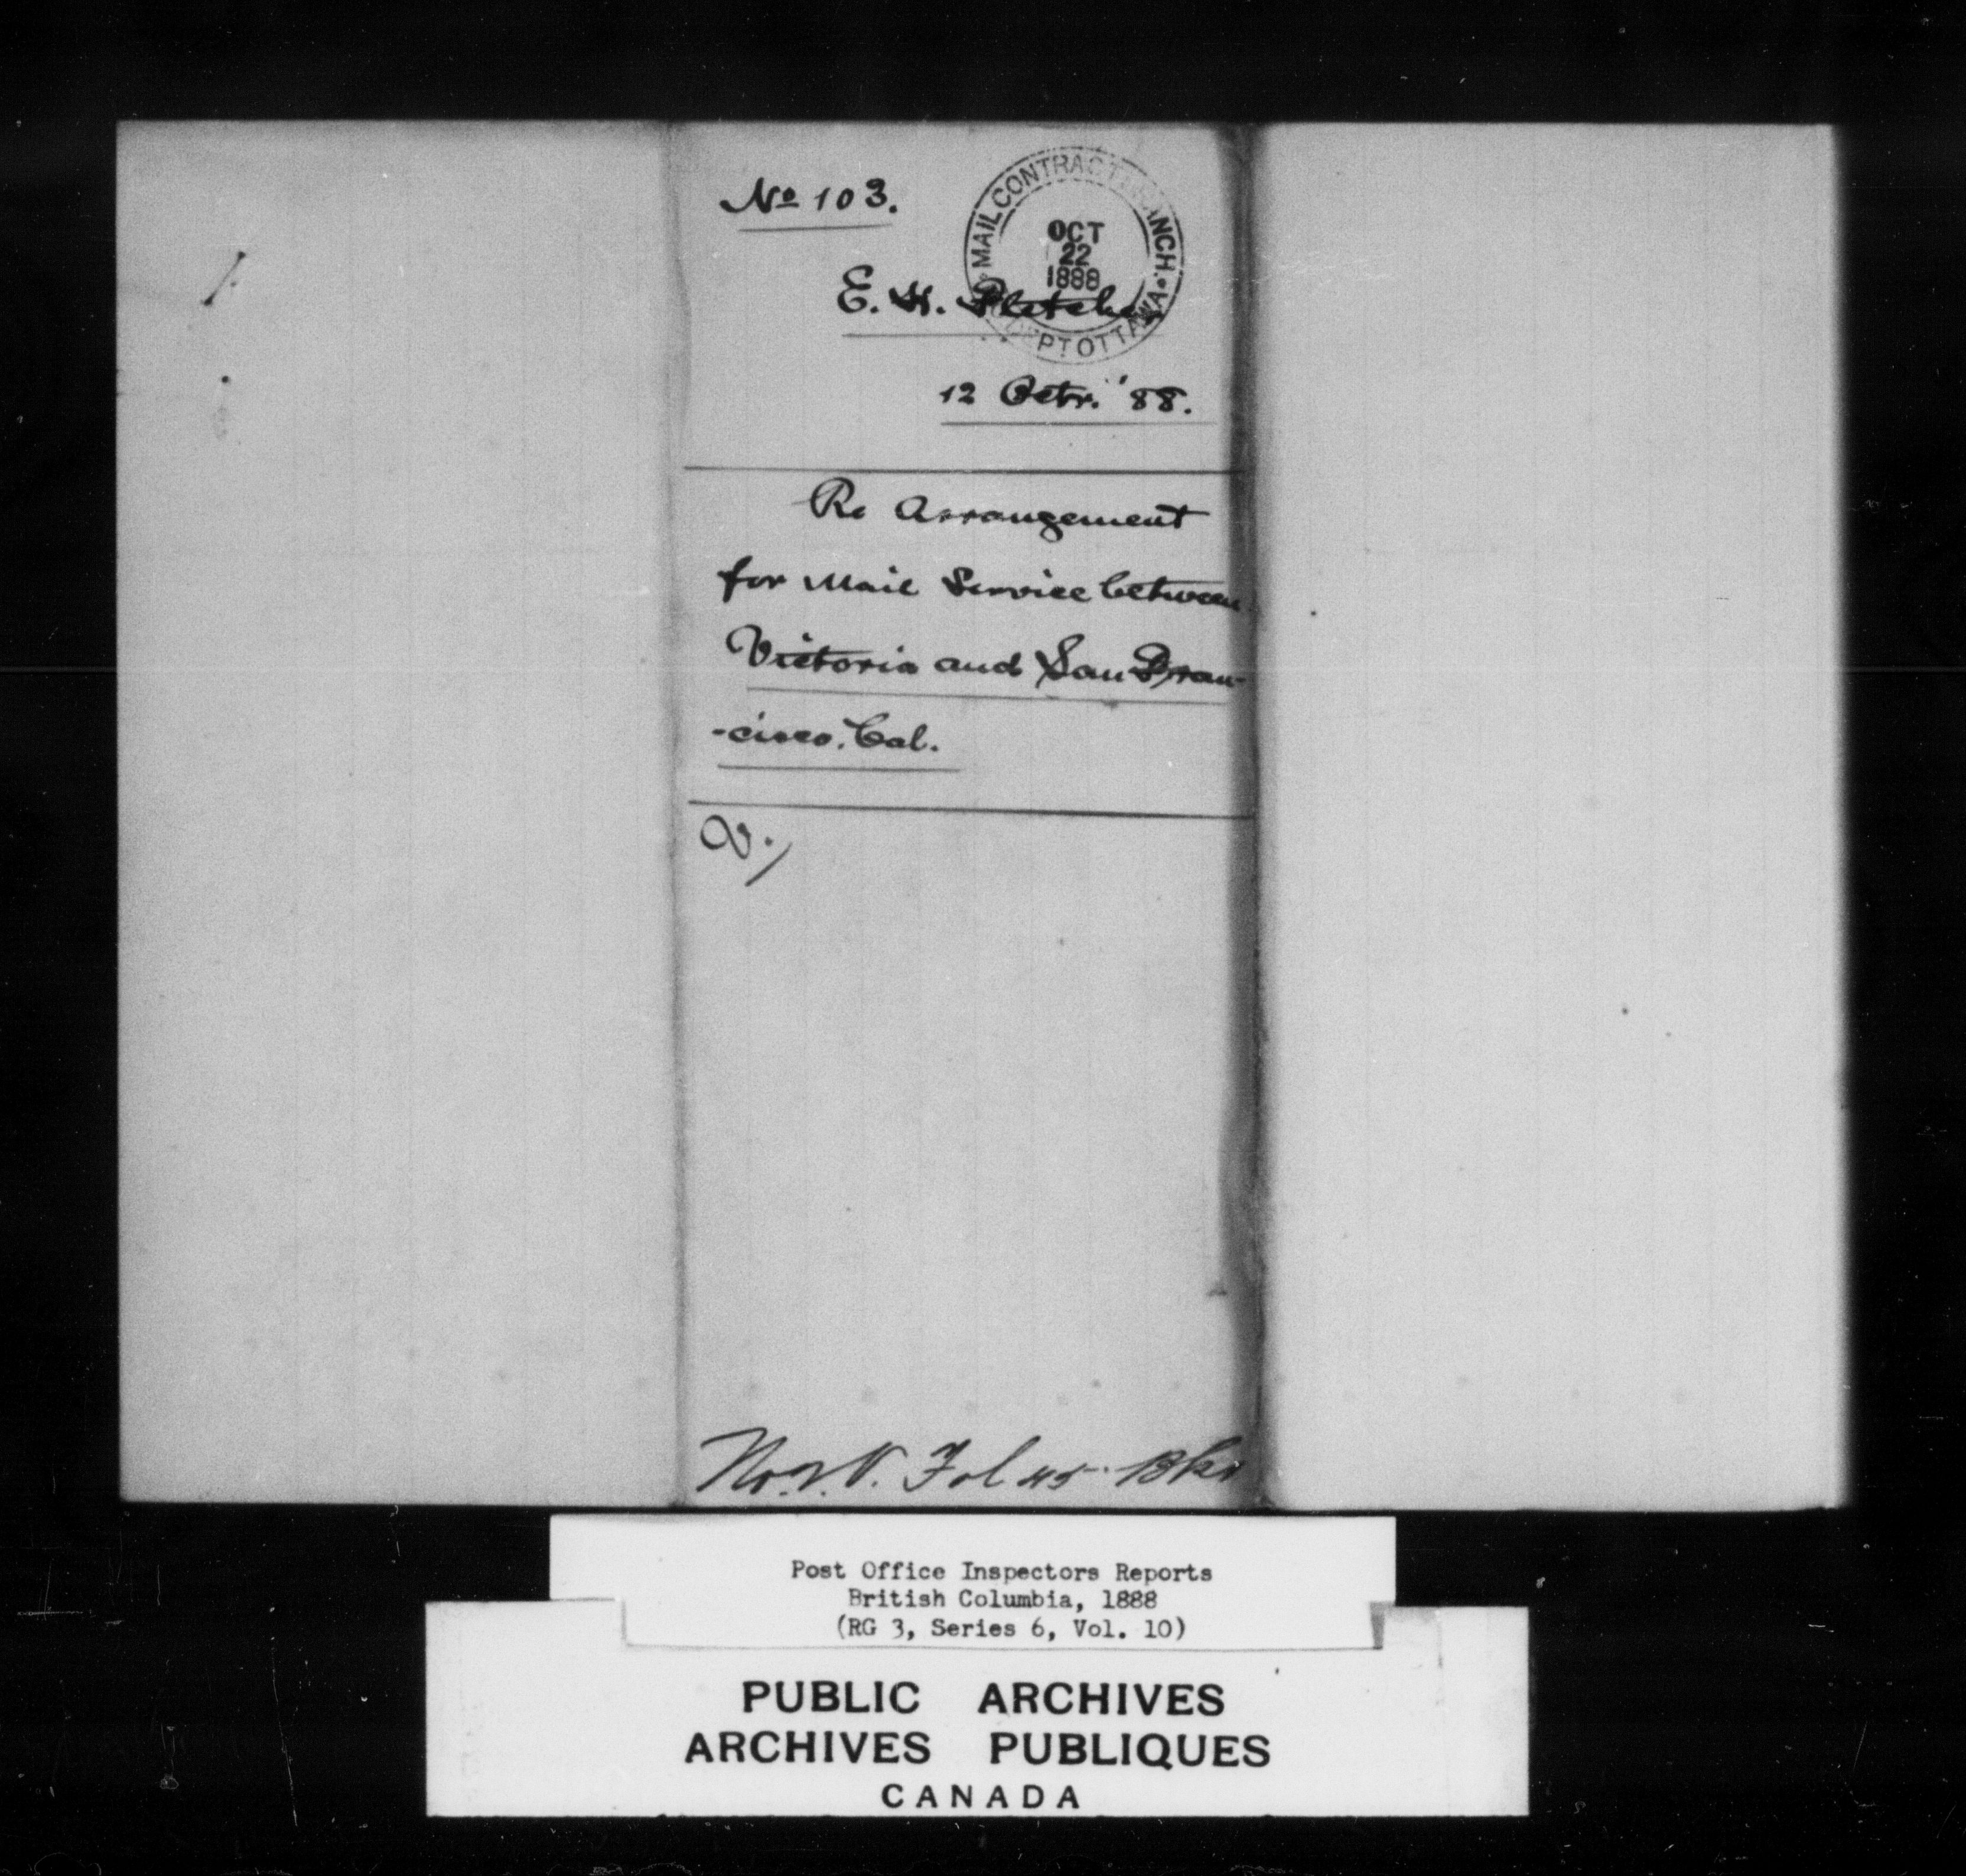 No 103.
MAIL CONTRACT BRANCH.
OCT
22
1888
DEPT OTTAWA
E. H. Fletcher
12 Octr. '88.
Re Arrangement
for Mail Service between
Victoria and San Fran-
-cisco. Cal.
V.
Fol 45
Post Office Inspectors Reports
British Columbia, 1888
(RG 3, Series 6, Vol. 10)
PUBLIC ARCHIVES
ARCHIVES PUBLIQUES
CANADA